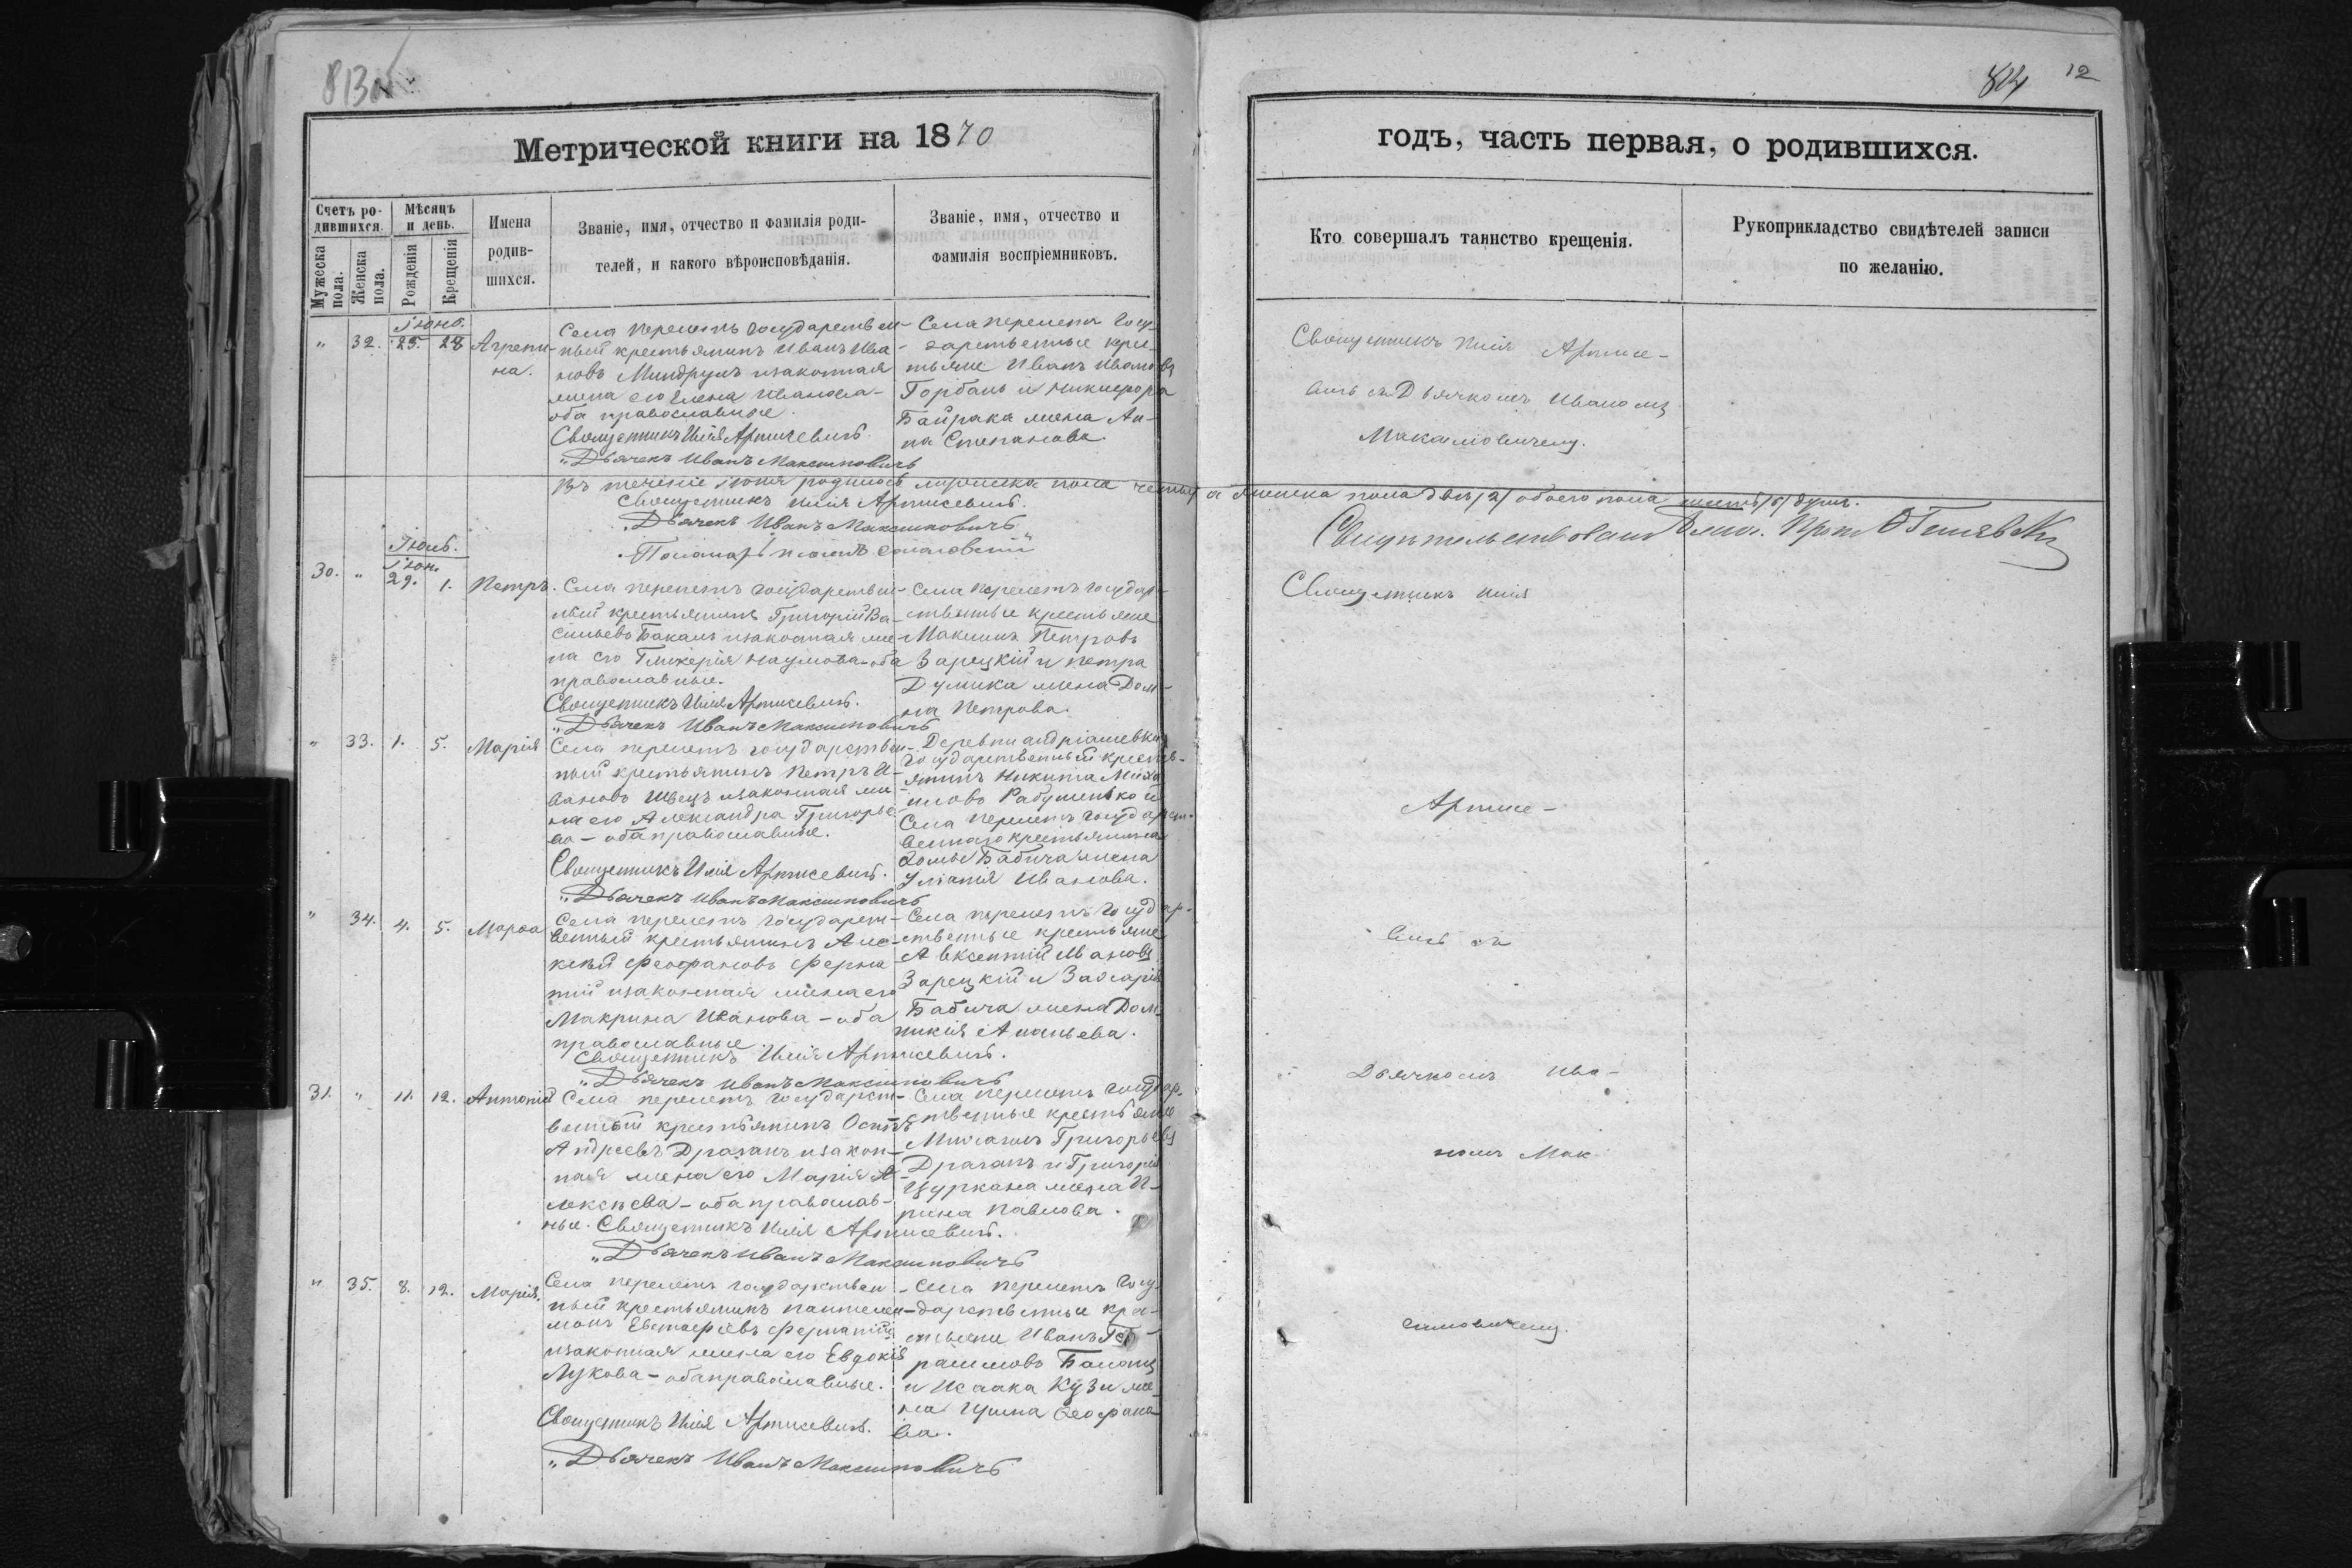 813об
Метрической книги на 1870
Счетъ ро-
дившихся.
Мѣсяцъ
и день.
Мужеска
пола.
Женска
пола.
Рожденія
Крещенія
Имена
родив-
шихся.
Званіе, имя, отчество и фамилія роди-
телей, и какого вѣроисповѣданія.
Званіе, имя, отчество и
фамилія воспріемниковъ.
Іюнь.
" 32. 25. 28 Агрепи-
на.
Села Перелетъ государствен-
ный крестьянинъ Иванъ Ива
новъ Миндруль и законная
жена его Елена Иванова-
оба православные.
Священникъ Илія Артисевичъ.
"Дьячекъ Иванъ Максимовичъ
Села Перелетъ Госу-
дарственные кре-
стьяне Иванъ Ивановъ
Горбань и Никифора
Байрака жена Ан-
на Степанова.
Въ теченіе іюня родилось мужеска пола четыре а женска пола двѣ /2/ обоего пола шесть /6/ душъ.
Священникъ Илія Артисевичъ.
"Дьячекъ Иванъ Максимовичъ
Пономарь
Іюль.
Іюн.
30. " 29. 1. Петръ.
Села Перелетъ государствен-
ный крестьянинъ Григорій Ва-
сильевъ Бакалъ и законная же-
на его Гликерія Наумова-оба
православные.
Священникъ Илія Артисевичъ.
"Дьячекъ Иванъ Максимовичъ
Села Перелетъ государ-
ственные крестьяне
Максимъ Петровъ
Зарецкій и Петра
Думика жена Дом-
на Петрова.
" 33. 1. 5. Марія
Села Перелетъ государствен-
ный крестьянинъ Петръ И-
вановъ Швецъ и законная же-
на его Александра Григорье-
ва - оба православные.
Священникъ Илія Артисевичъ.
"Дьячекъ Иванъ Максимовичъ
Деревни Андріашевки
Государственный кресть-
янинъ Никита Миха
иловъ Рабушенко и
Села Перелетъ государст-
веннаго крестьянина
Хомы Бабича жена
Уліанія Иванова.
" 34. 4. 5. Марѳа
Села Перелетъ государст-
венный крестьянинъ Але-
ксѣй Феофановъ Ферна
тій и законная жена его
Макрина Иванова - оба
православные.
Священникъ Илія Артисевичъ.
"Дьячекъ Иванъ Максимовичъ
Села Перелетъ государ-
ственные крестьяне
Авксентій Ивановъ
Зарецкій и Захарія
Бабича жена Дом-
никія Ананьева.
31. " 11. 12. Антоній
Села Перелетъ государст-
венный крестьянинъ Осипъ
Андреевъ Драганъ и закон-
ная жена его Марія А-
лексѣева - оба православ-
ные. Священникъ Илія Артисевичъ.
"Дьячекъ Иванъ Максимовичъ
Села Перелетъ государ-
ственные крестьяне
Михаилъ Григорьевъ
Драганъ и Григорія
Цуркана жена И-
рина Павлова.
" 35. 8. 12. Марія.
Села Перелетъ государствен
ный крестьянинъ Пантелей-
монъ Евстафіевъ Фернатій
и законная жена его Евдокія
Лукова - оба православные.
Священникъ Илія Артисевичъ.
"Дьячекъ Иванъ Максимовичъ
Села Перелетъ Госу-
дарственные кре-
стьяне Иванъ Ге-
расимовъ Баланъ
и Исаака Кузи же-
на Ирина Ѳеофано-
ва.
814 12
годъ, часть первая, о родившихся.
Кто совершалъ таинство крещенія.
Рукоприкладство свидѣтелей записи
по желанію.
Священникъ Илія Артисе-
вичъ съ Дьячкомъ Иваномъ
Максимовичемъ.
Свидѣтельствовалъ
Священникъ Илія
Артисе-
вичъ съ
Дьячкомъ Ива-
номъ Мак-
симовичемъ.